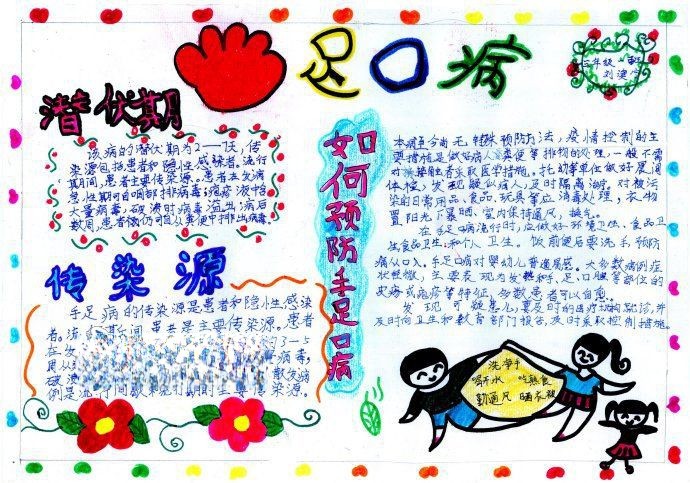 足口病
三年级一班
潜伏期
该病的潜伏期为2—7天，传
染源包括患者和隐性感染者。流行
期间，患者主要传染源。患者在发病
急性期可自咽部排病毒；疱疹液中含
大量病毒，破溃时病毒溢出；病后
数周，患者仍可自从粪便中排出病毒。
传染源
手足口病的传染源是患者和隐性感染
者。流行期间，患者是主要传染源。患者
在发
3—5
周从
病毒，
破溃
散发病
例是流行间歇和流行期的主要传染源。
如何预防手足口病
本病至今尚无特殊预防方法，疫情控制的主
要措施是做好病人粪便等排物的处理，一般不需
对接触者采取医学措施。托幼等单位做好晨间
体检，发现疑似病人，及时隔离治疗。对被污
染的日常用品、食品、玩具等应消毒处理，衣物
置阳光下暴晒，室内保持通风，换气。
在手足口病流行时，应做好环境卫生、食品卫
生食品卫生和个人卫生。饭前便后要洗手，预防
病从口入。手足口病对婴幼儿普遍易感。大多数病例症
状轻微，主要表现为发热和手、足、口腔等部位的
皮疹或疱疹等特征，多数患者可以自愈。
发现可疑患儿，要及时的医疗机构就诊，并
及时向卫生和教育部门报告，及时采取控制措施。
洗净手
喝开水 吃熟食
勤通风 晒衣被